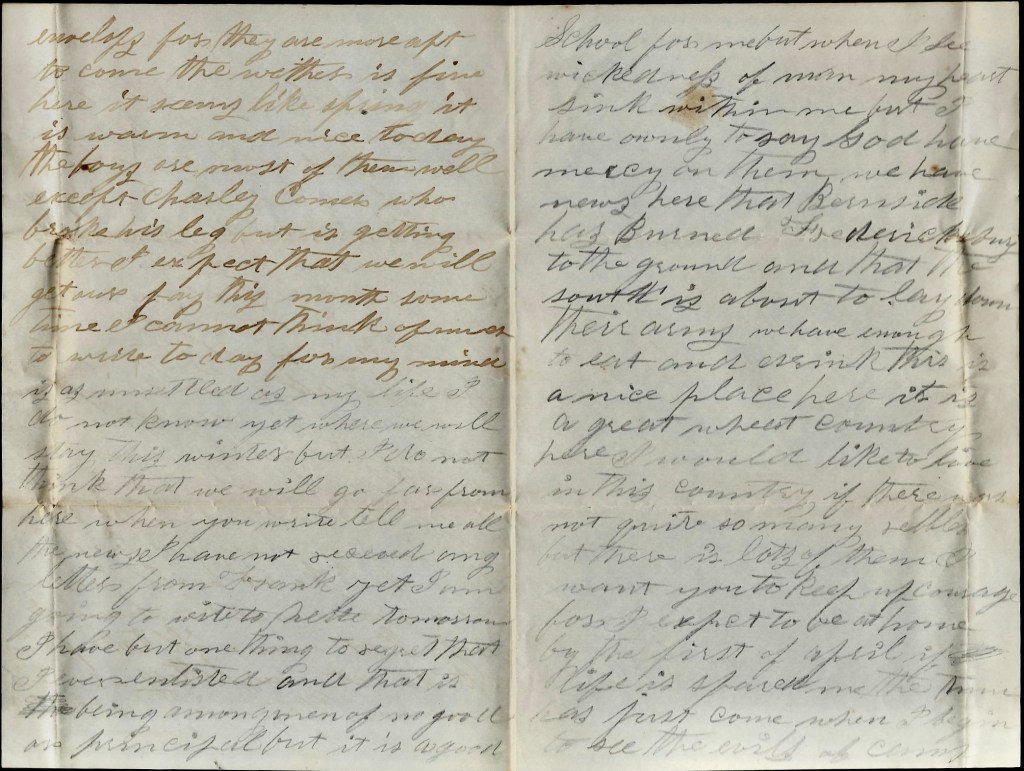 envelops for they are more apt
to come the wether is fine
here it seems like spring it
is warm and nice to day
the boys are most of them well
except Charley Comes who
broke his leg but is getting
better I expect that we will
get our pay this month some
time I cannot think of much
to write to day for my mind
is as unsettled as my life I
do not know yet where we will
stay this winter but I do not
think that we will go far from
here when you write tell me all
the newse I have not receved any
letter from Frank yet I am
going to write to Nette tomorrow
I have but one thing to regret that
I ever enlisted and that is
the being among men of no good
or principel but it is a good
School for me but when I see
wickedness of man my heart
sink within me but I
have ownly to say God have
mercy on them we have
news here that Bernside
has Burned Fredericksburg
to the ground and that the
south is about to lay down
their arms we have enough
to eat and drink this is
a nice place here it is
a great wheat country
here I would like to live
in this country if there was
not quite so many rebbles
but there is lots of them I
want you to keep up courage
for I expct to be at home
by the first of april if
life is spared me the time
has just come when I begin
to see the evils of camp